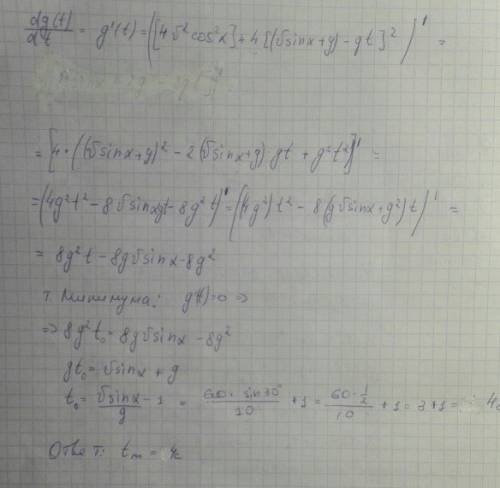 dg(t)/dt = g'(t) = ([4υ²cos²α] + 4[(υsinα+g) - gt]²)' =
= [4·((υsinα+g)² - 2(υsinα+g)gt + g²t²)]' =
= (4g²t² - 8υsinαgt - 8g²t)' = ((4g²)t² - 8(gυsinα+g²)t)' =
= 8g²t - 8gυsinα - 8g²
т. минимума: g'(t)=0 =>
=> 8g²t₀ = 8gυsinα - 8g²
gt₀ = υsinα + g
t₀ = υsinα/g - 1 = 60·sin30°/10 + 1 = 60·½/10 + 1 = 3+1 = 4с
Ответ: tₘ = 4с